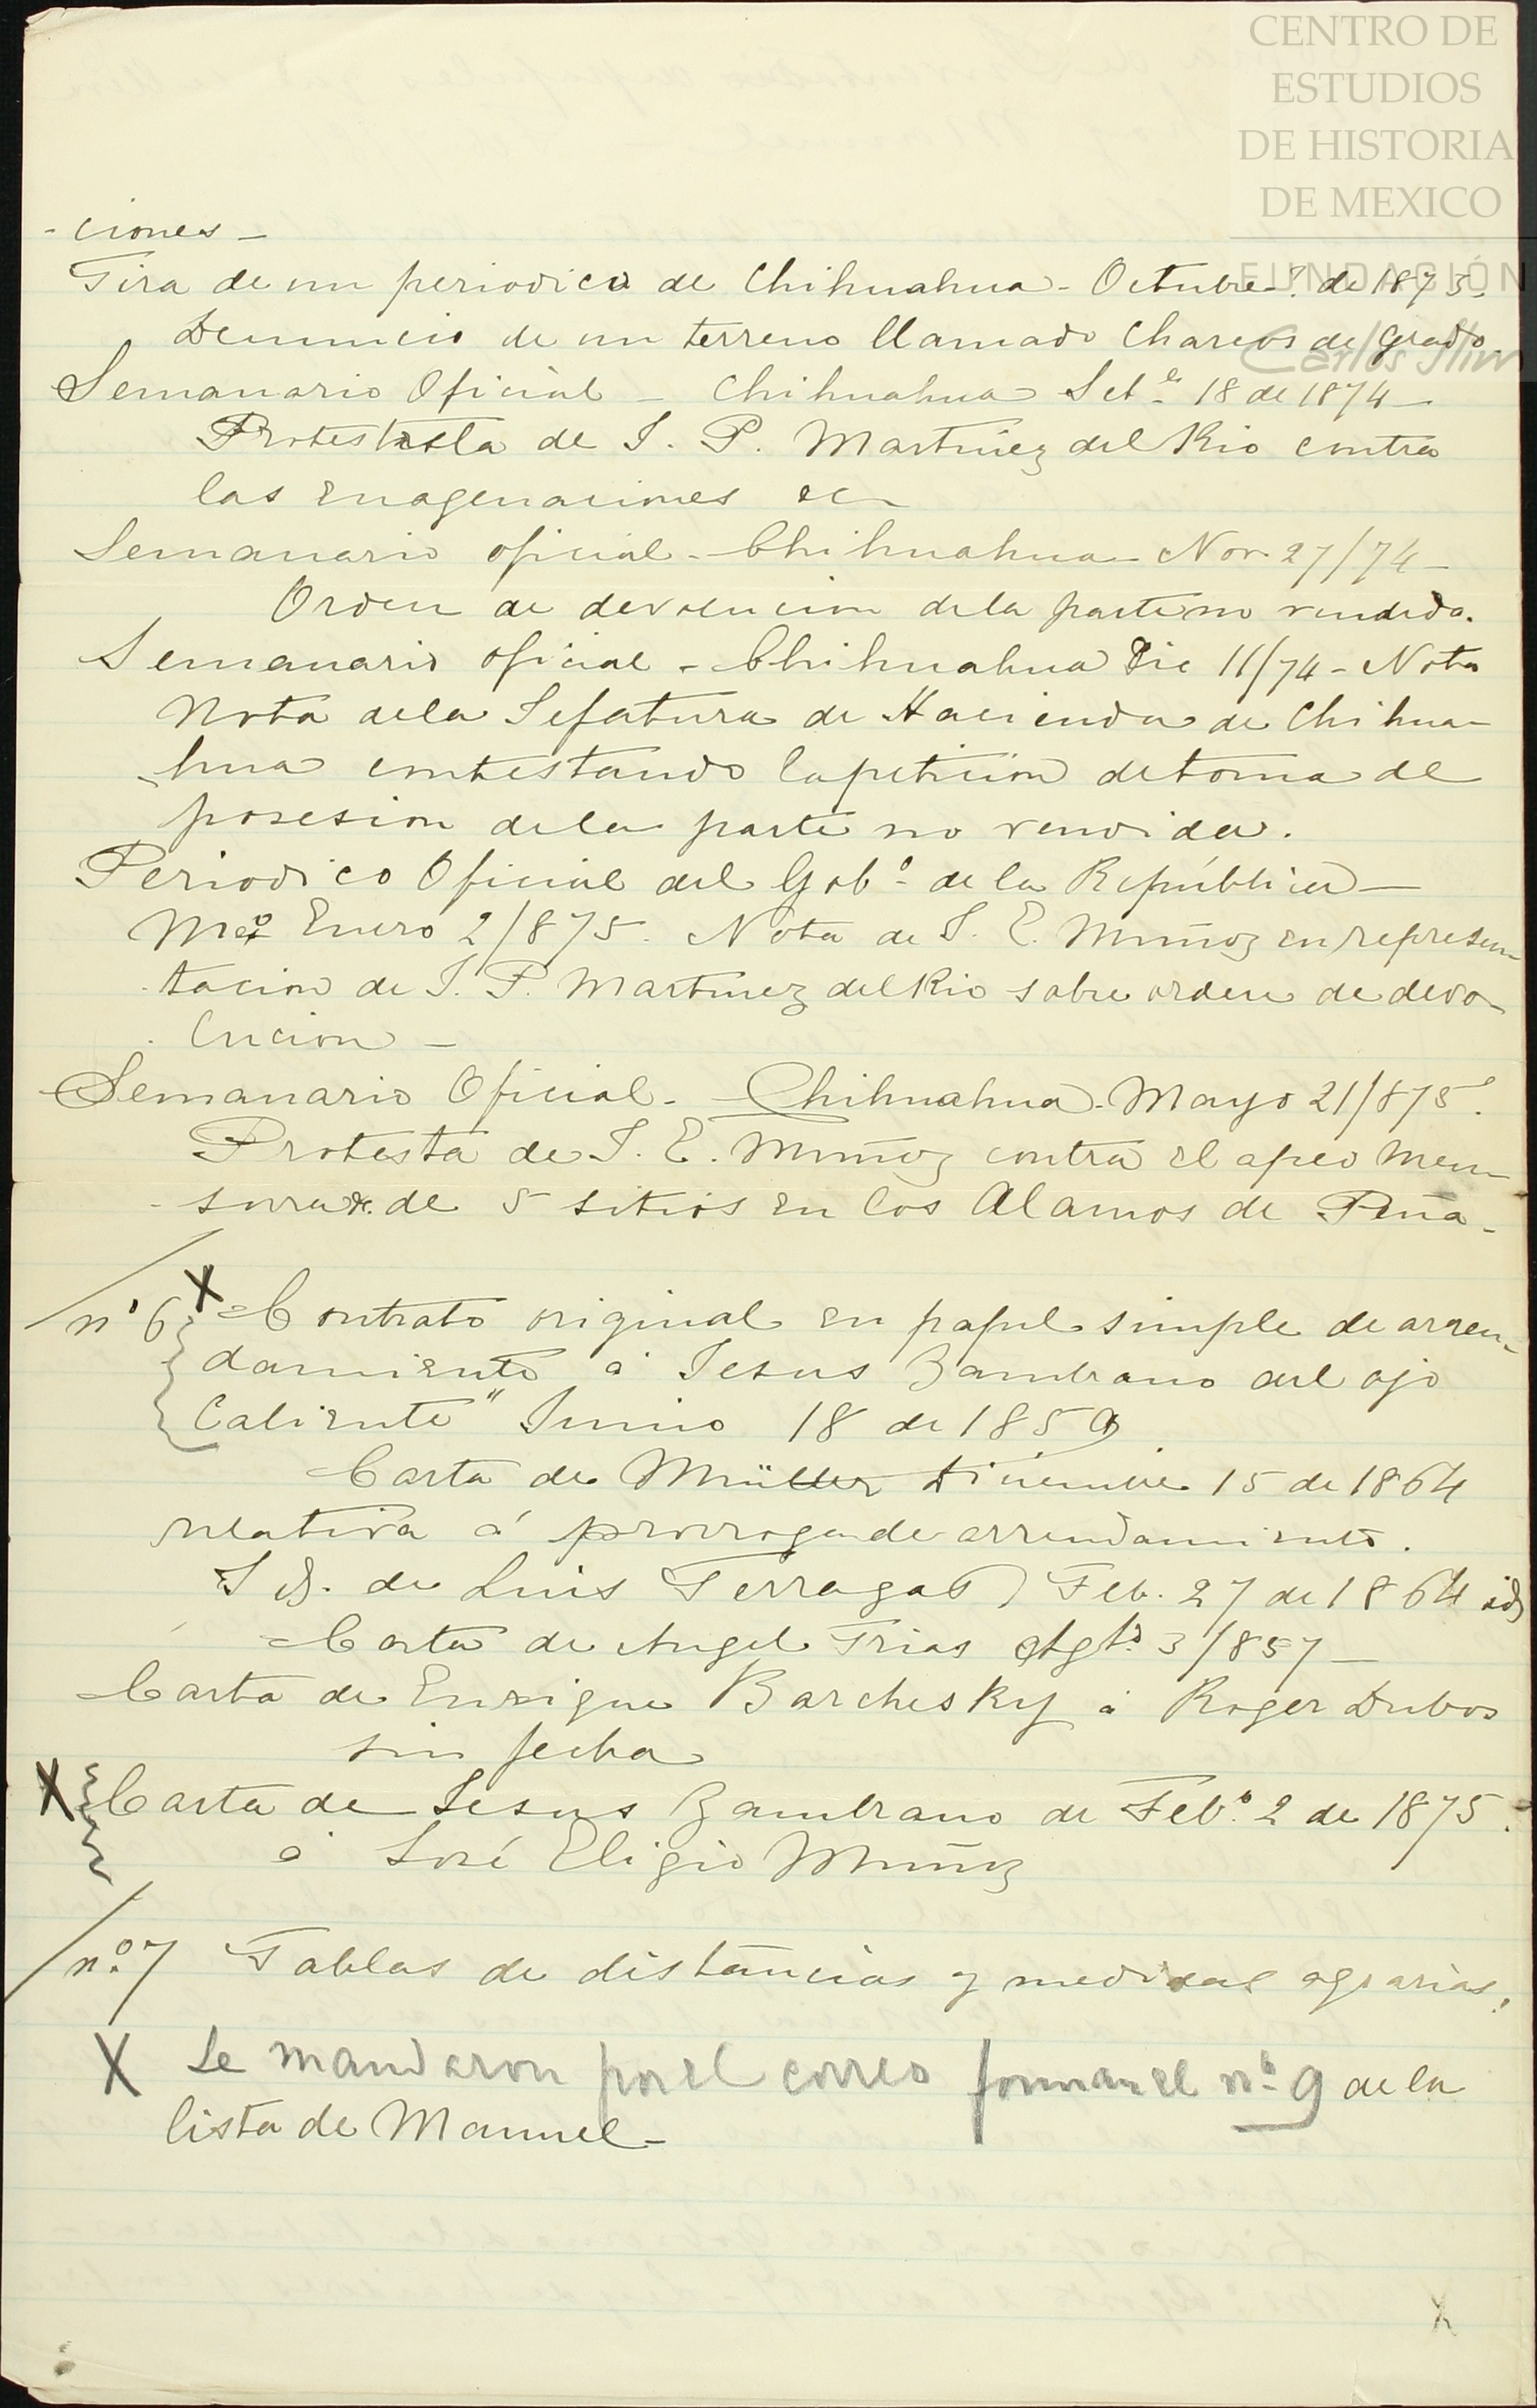 CENTRO DE
ESTUDIOS
DE HISTORIA
DE MEXICO
FUNDACIÓN
Carlos Slim
-ciones-
Tira de un periodico de Chihuahua - Octubre de 1873.
Denuncio de un terreno llamado Charcos de Grado.
Semanario Oficial - Chihuahua Setᵉ 18 de 1874 -
de J. P. Martinez del Rio contra
las enagenaciones
Semanario oficial - Chihuahua - Nov. 27/74 -
Orden de devolucion dela parte no vendida.
Semanario oficial - Chihuahua Dic 11/74 - Nota
Nota dela Jefatura de Hacienda de Chihua-
hua contestando la peticion de toma de
posesion dela parte no vendida.
Periodico Oficial del Gobº de la República -
Mexº Enero 2/875. Nota de J. E. Muñoz en represen-
tacion de J. P. Martinez del Rio sobre orden de devo-
lucion -
Semanario Oficial. - Chihuahua. Mayo 21/875.
Protesta de J. E. Muñoz contra el apeo men-
sura &. de 5 sitios en los Alamos de Peña -
nº 6 X Contrato original en papel simple de arren-
damiento á Jesus Zambrano del ojo
Caliente" Junio 18 de 1859
Carta de Müller Diciembre 15 de 1864
relativa á prorroga de arrendamiento.
Id. de Luis Terrazas Feb. 27 de 1864 id
Carta de Angel Trias Agtº 3/857 -
Carta de Enrique Barchesky á Roger Dubos
sin fecha
X Carta de Jesus Zambrano de Febº 2 de 1875.
á José Eligio Muñoz
nº 7 Tablas de distancias y medidas agrarias.
X Se mandaron por el correo forman el nº 9 de la
lista de Manuel -
X